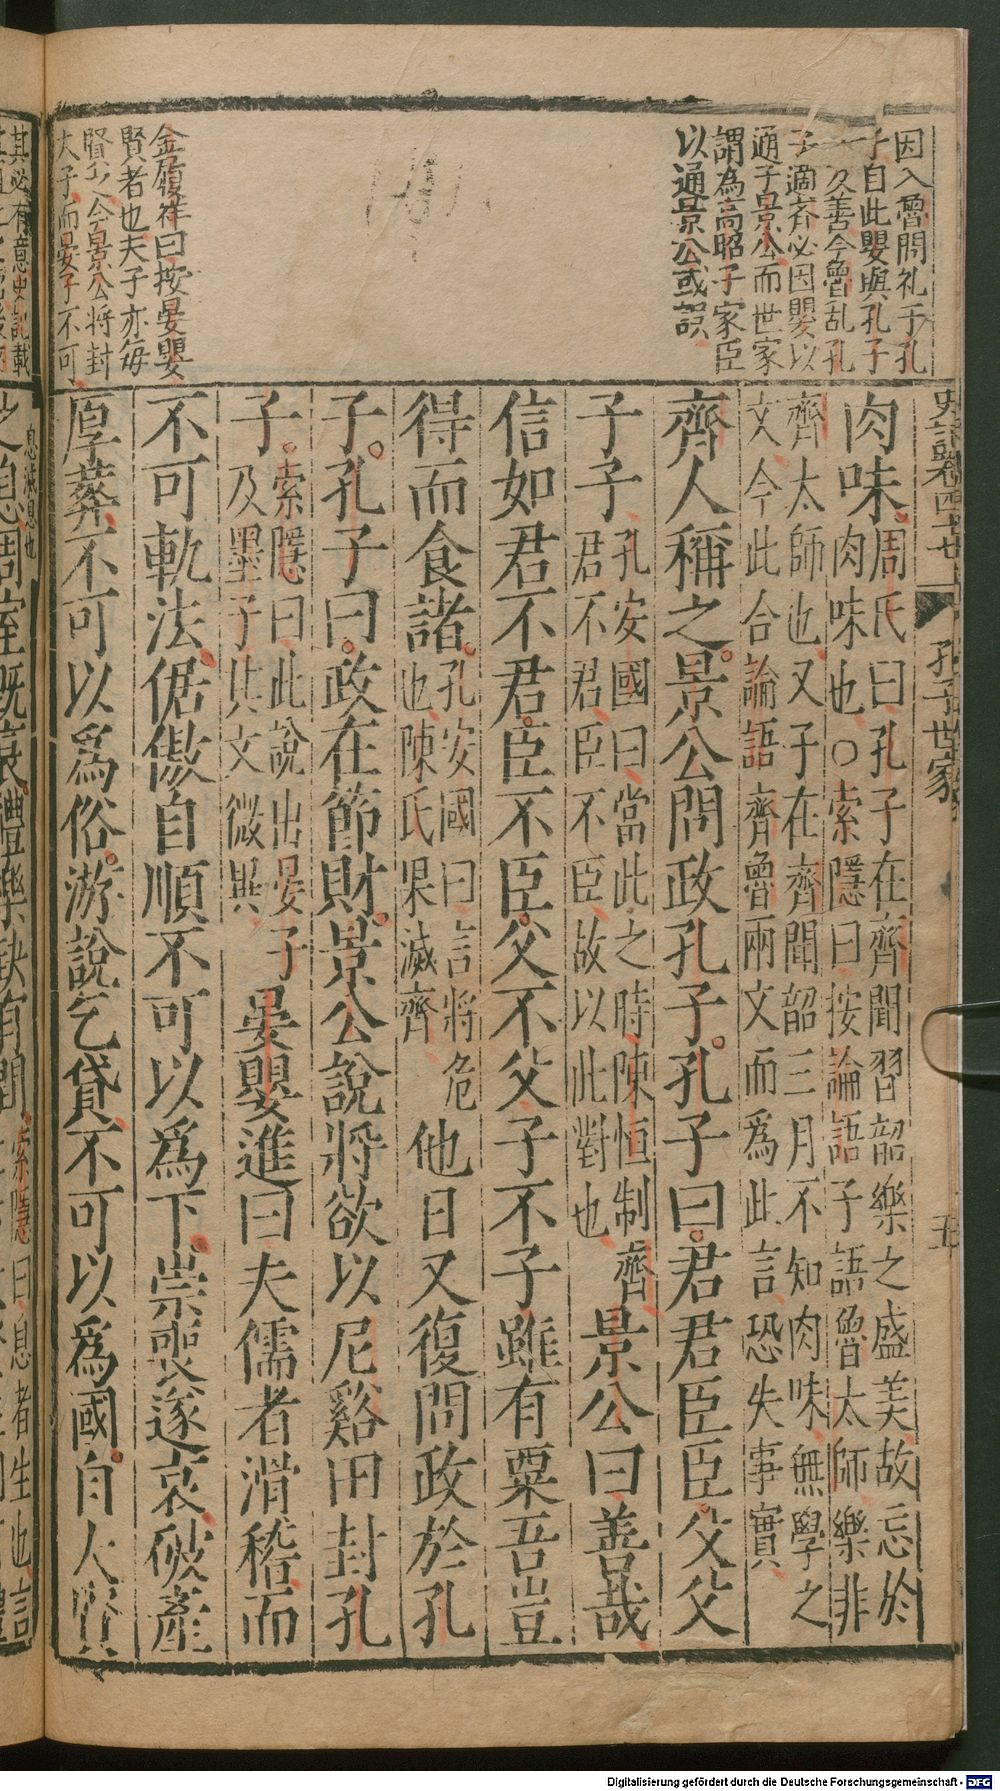 因入魯問礼于孔
子自此嬰與孔子
久善今魯乱孔
子適齊必因嬰以
通于景公而世家
謂為高昭子家臣
以通景公或誤
金履祥曰按晏嬰
賢者也夫子亦每
賢之今景公將封
夫子而晏子不可
其必有意史記載
孔子世家
五
肉味周氏曰孔子在齊聞習韶樂之盛美故忘於
肉味也○索隱曰按論語子語魯太師樂非
齊太師也又子在齊聞韶三月不知肉味無學之
文今此合論語齊魯兩文而爲此言恐失事實
齊人稱之景公問政孔子孔子曰君君臣臣父父
子子孔安國曰當此之時陳恒制齊
君不君臣不臣故以此對也景公曰善哉
信如君不君臣不臣父不父子不子雖有粟吾豈
得而食諸孔安國曰言將危
也陳氏果滅齊他日又復問政於孔
子孔子曰政在節財景公說將欲以尼谿田封孔
子索隱曰此說出晏子
及墨子其文微異晏嬰進曰夫儒者滑稽而
不可軌法倨傲自順不可以爲下崇喪遂哀破產
厚葬不可以爲俗游說乞貸不可以爲國自大賢
之息周室既衰禮樂缺有間索隱曰息者生也言
Digitalisierung gefördert durch die Deutsche Forschungsgemeinschaft - DFG